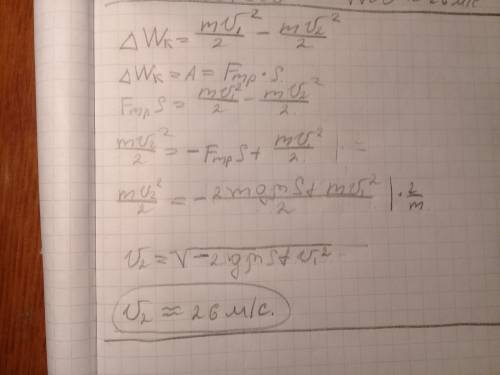 ΔWк = mv₁²/2 − mv₂²/2
ΔWк = A = Fтр · S.
Fтр S = mv₁²/2 − mv₂²/2
mv₂²/2 = −Fтр S + mv₁²/2 | =
mv₂²/2 = −2mgμS + mv₁²/2 | · 2/m
v₂ = √−2gμS + v₁²
v₂ ≈ 26 м/с.